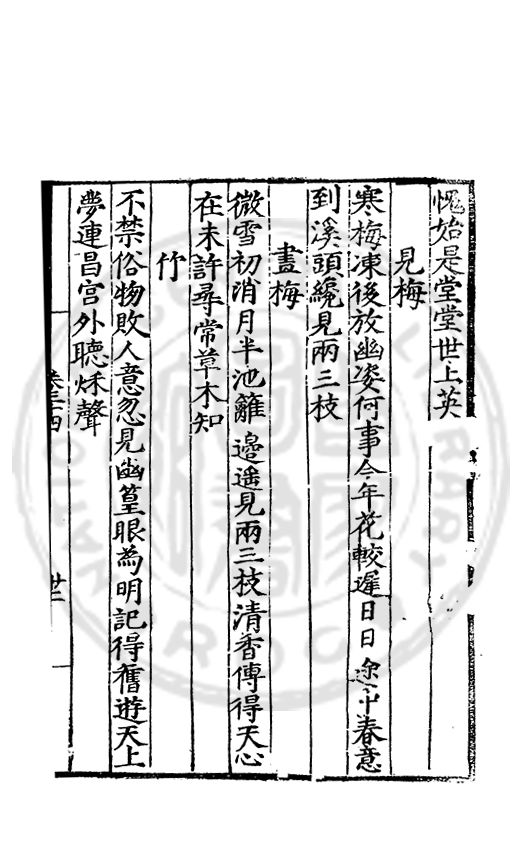 愧始是堂堂世上英
見梅
寒梅凍後放幽姿何事今年花較遲日日途中春意
到溪頭纔見兩三枝
畫梅
微雪初消月半池籬邉遥見兩三枝清香傳得天心
在未許尋常草木知
竹
不禁俗物敗人意忽見幽篁眼為明記得舊遊天上
夢連昌宫外聽秌聲
卷三十四
廿二